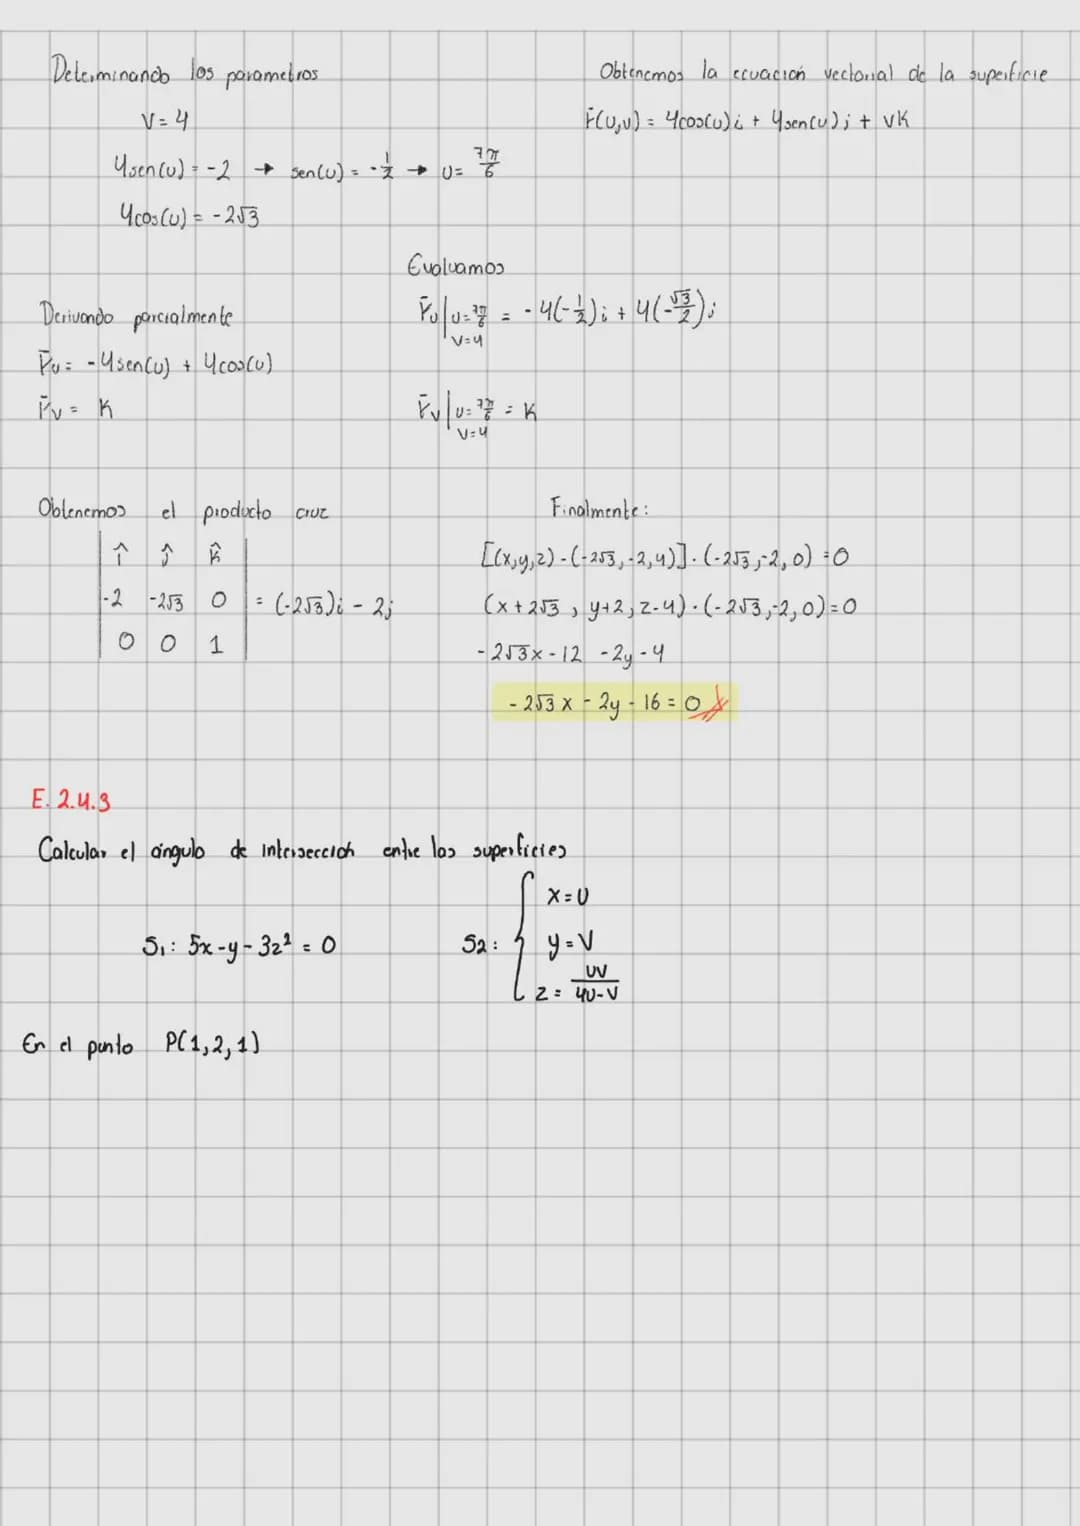 Determinando los parametros
V = 4
4sen(u) = -2 → sen(u) = -1/2 → U = 7π/6
4cos(u) = -2√3
Obtenemos la ecuación vectorial de la superficie
r̄(u,v) = 4cos(u)i + 4sen(u)j + vK
Derivando parcialmente
r̄u = -4sen(u) + 4cos(u)
r̄v = K
Evaluamos
r̄u|u=7π/6 v=4 = -4(-1/2)i + 4(-√3/2)j
r̄v|u=7π/6 v=4 = K
Obtenemos el producto cruz
| î ĵ k̂ |
| -2 -2√3 0 | = (-2√3)i - 2j
| 0 0 1 |
Finalmente:
[(x,y,z) - (-2√3, -2, 4)] · (-2√3, -2, 0) = 0
(x + 2√3, y+2, z-4) · (-2√3, -2, 0) = 0
-2√3x - 12 -2y - 4
-2√3 x - 2y - 16 = 0
E. 2.4.3
Calcular el ángulo de intersección entre las superficies
S1: 5x - y - 3z² = 0
S2: { x = U
y = V
z = UV/4U-V
En el punto P(1,2,1)